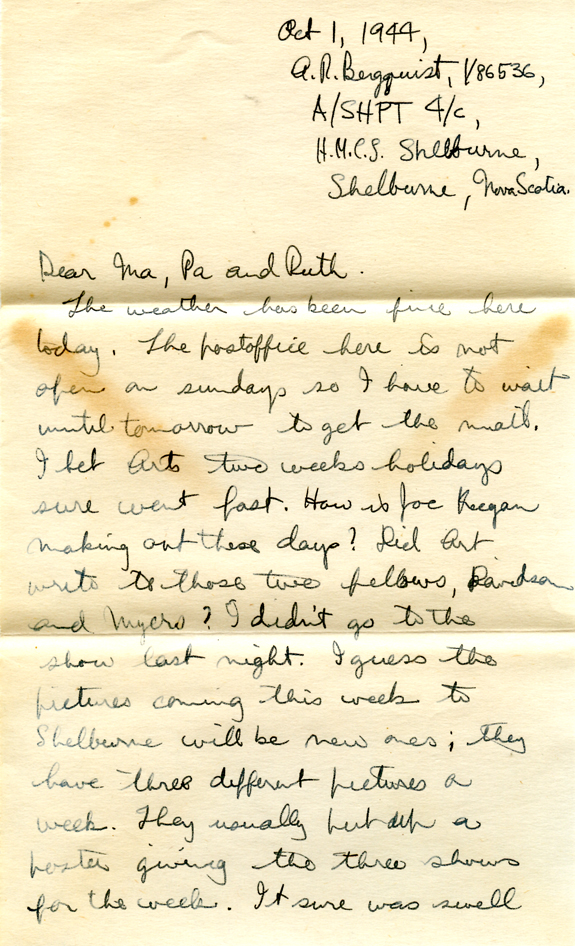 Oct 1, 1944,
A.R. Bergquist, V86536,
A/SHPT 4/c,
H.M.C.S. Shelburne,
Shelburne, Nova Scotia.
Dear Ma, Pa and Ruth.
The weather has been fine here
today. The postoffice here is not
open on sundays so I have to wait
until tomorrow to get the mail.
I bet Arts two weeks holidays
sure went fast. How is Joe Keegan
making out these days? Did Art
write to those two fellows, Davidson
and Myers? I didn't go to the
show last night. I guess the
pictures coming this week to
Shelburne will be new ones; they
have three different pictures a
week. They usually put up a
poster giving the three shows
for the week. It sure was swell